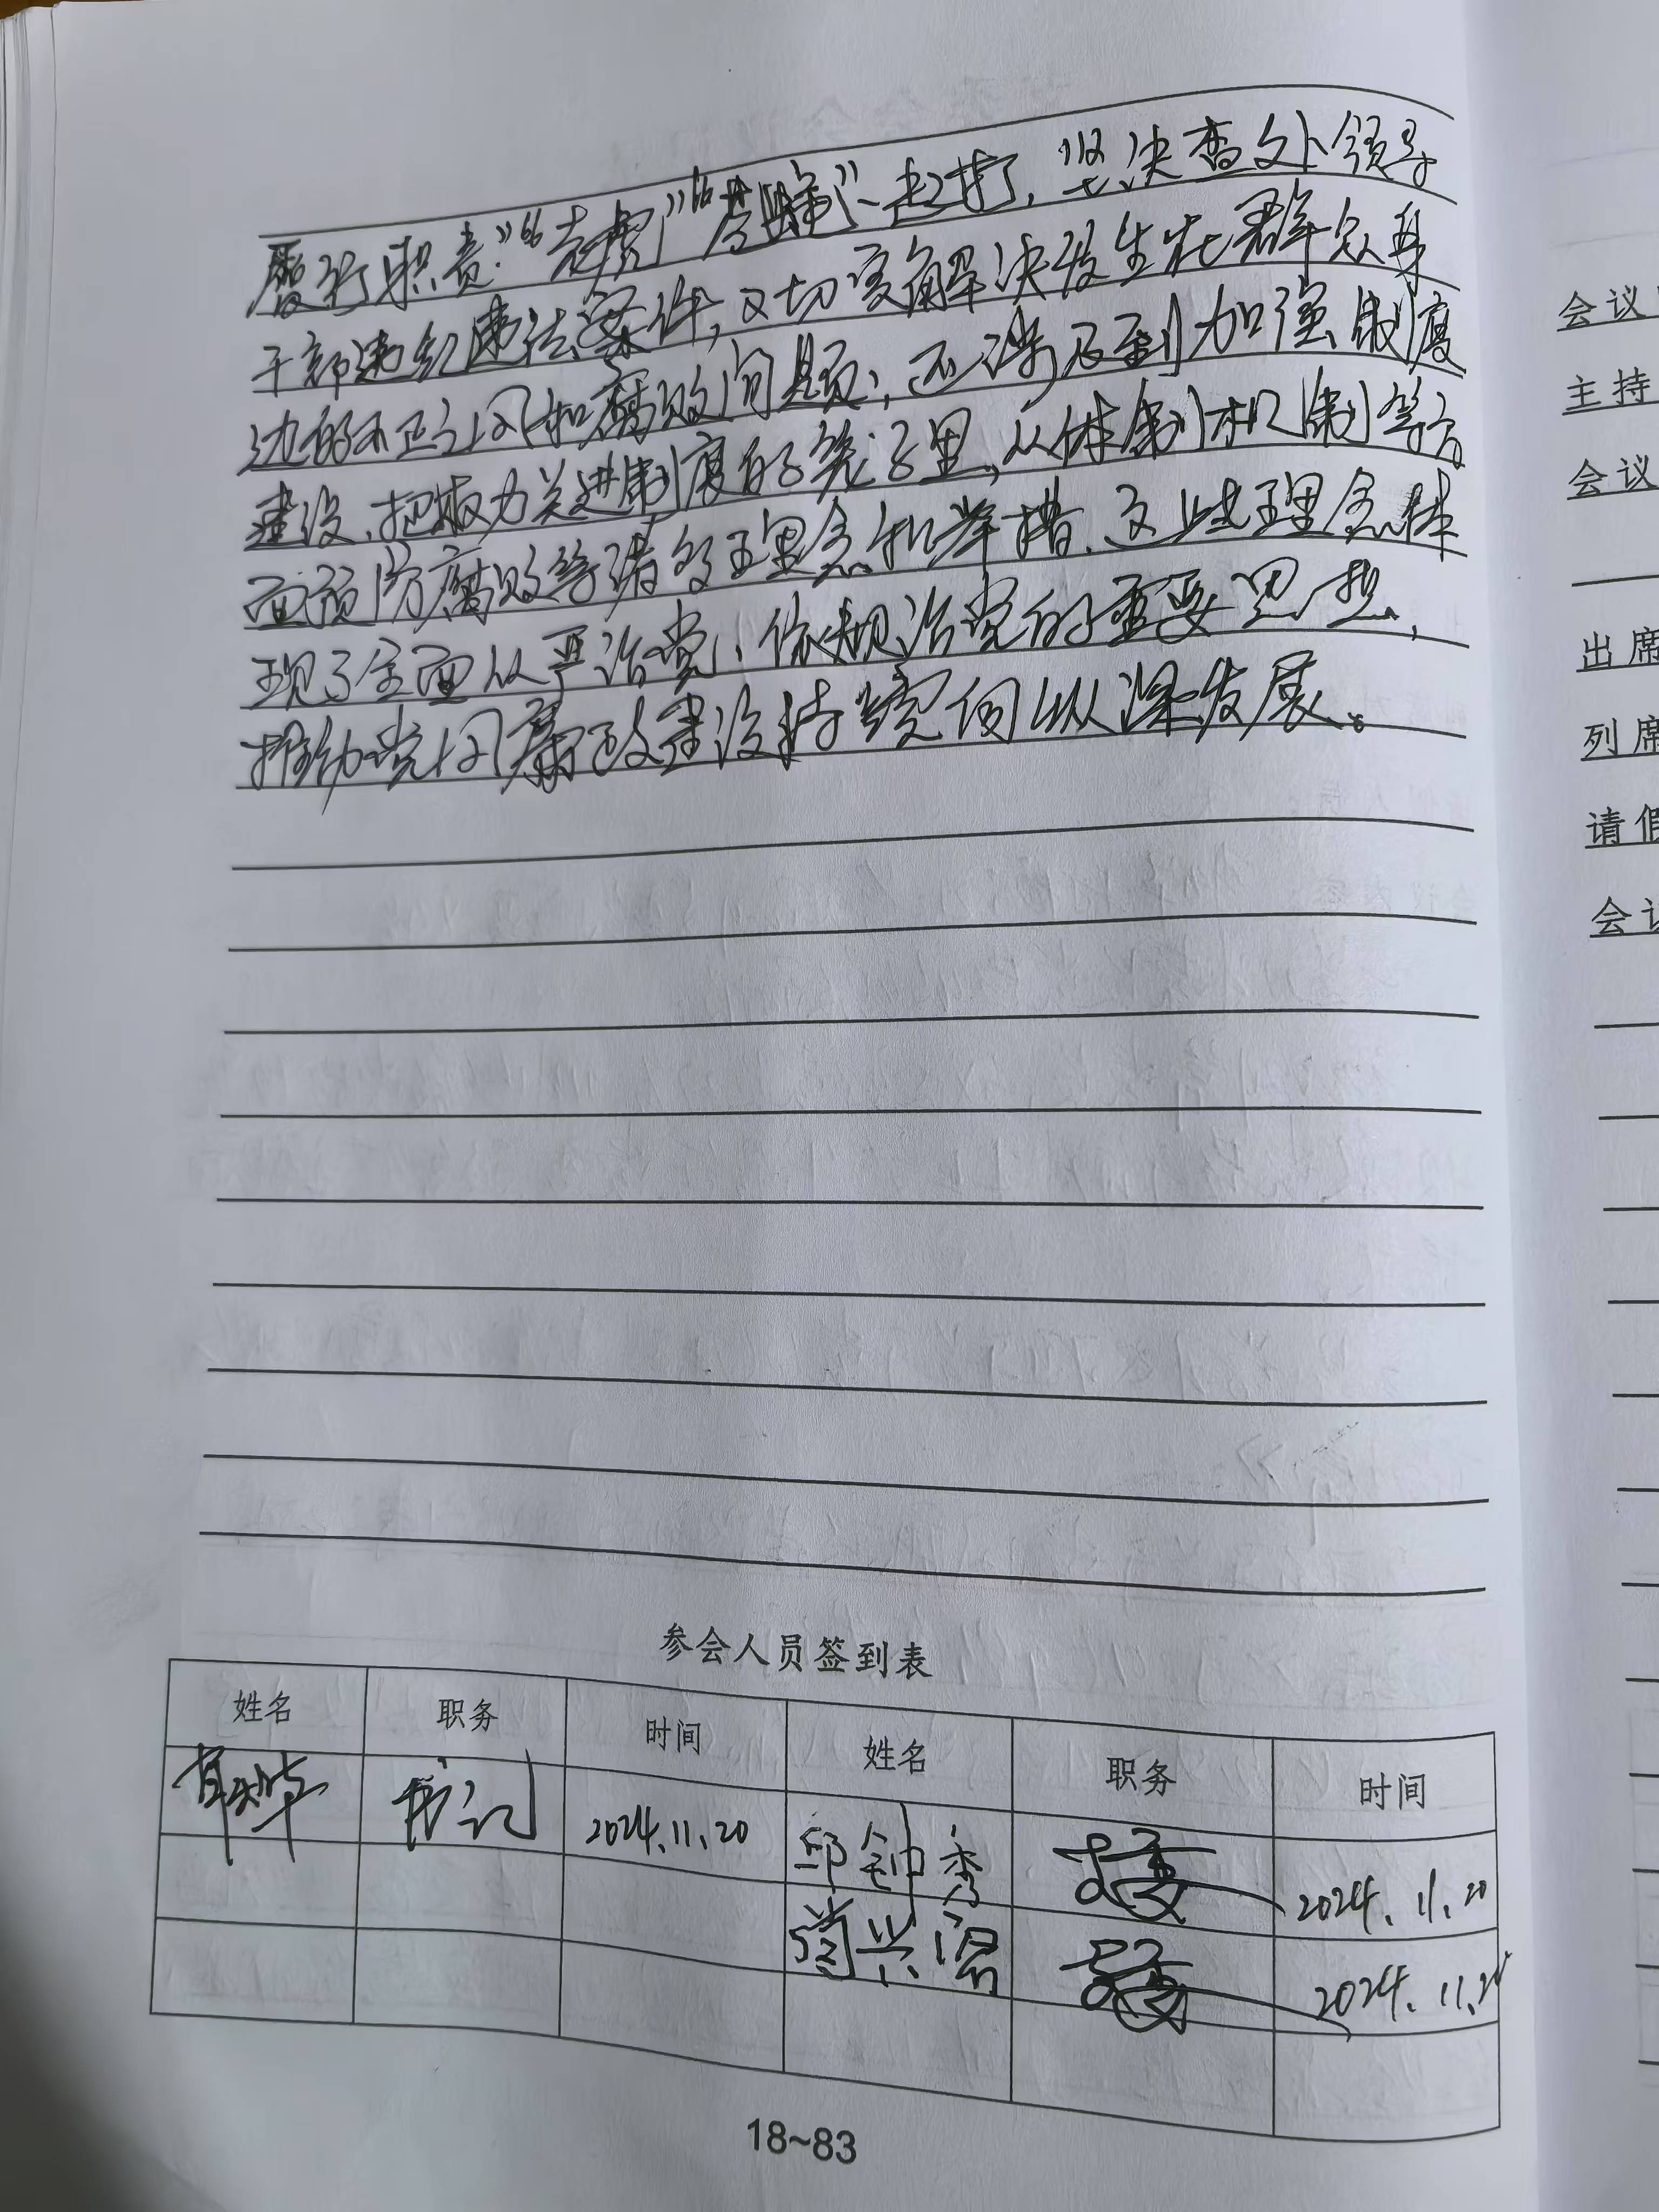 履行职责。“老虎”“苍蝇”一起打，坚决查处领导
干部违纪违法案件，又切实解决发生在群众身
边的不正之风和腐败问题；还涉及到加强制度
建设、把权力关进制度的笼子里，从体制机制等方
面预防腐败等诸多理念和举措。这些理念体
现了全面从严治党、依规治党的重要思想，
推动党风廉政建设持续向纵深发展。
参会人员签到表
姓名 职务 时间 姓名 职务 时间
书记 2024.11.20 邱钟秀 2024.11.20
2024.11.
18~83
会议
主持
会议
出席
列席
请假
会议